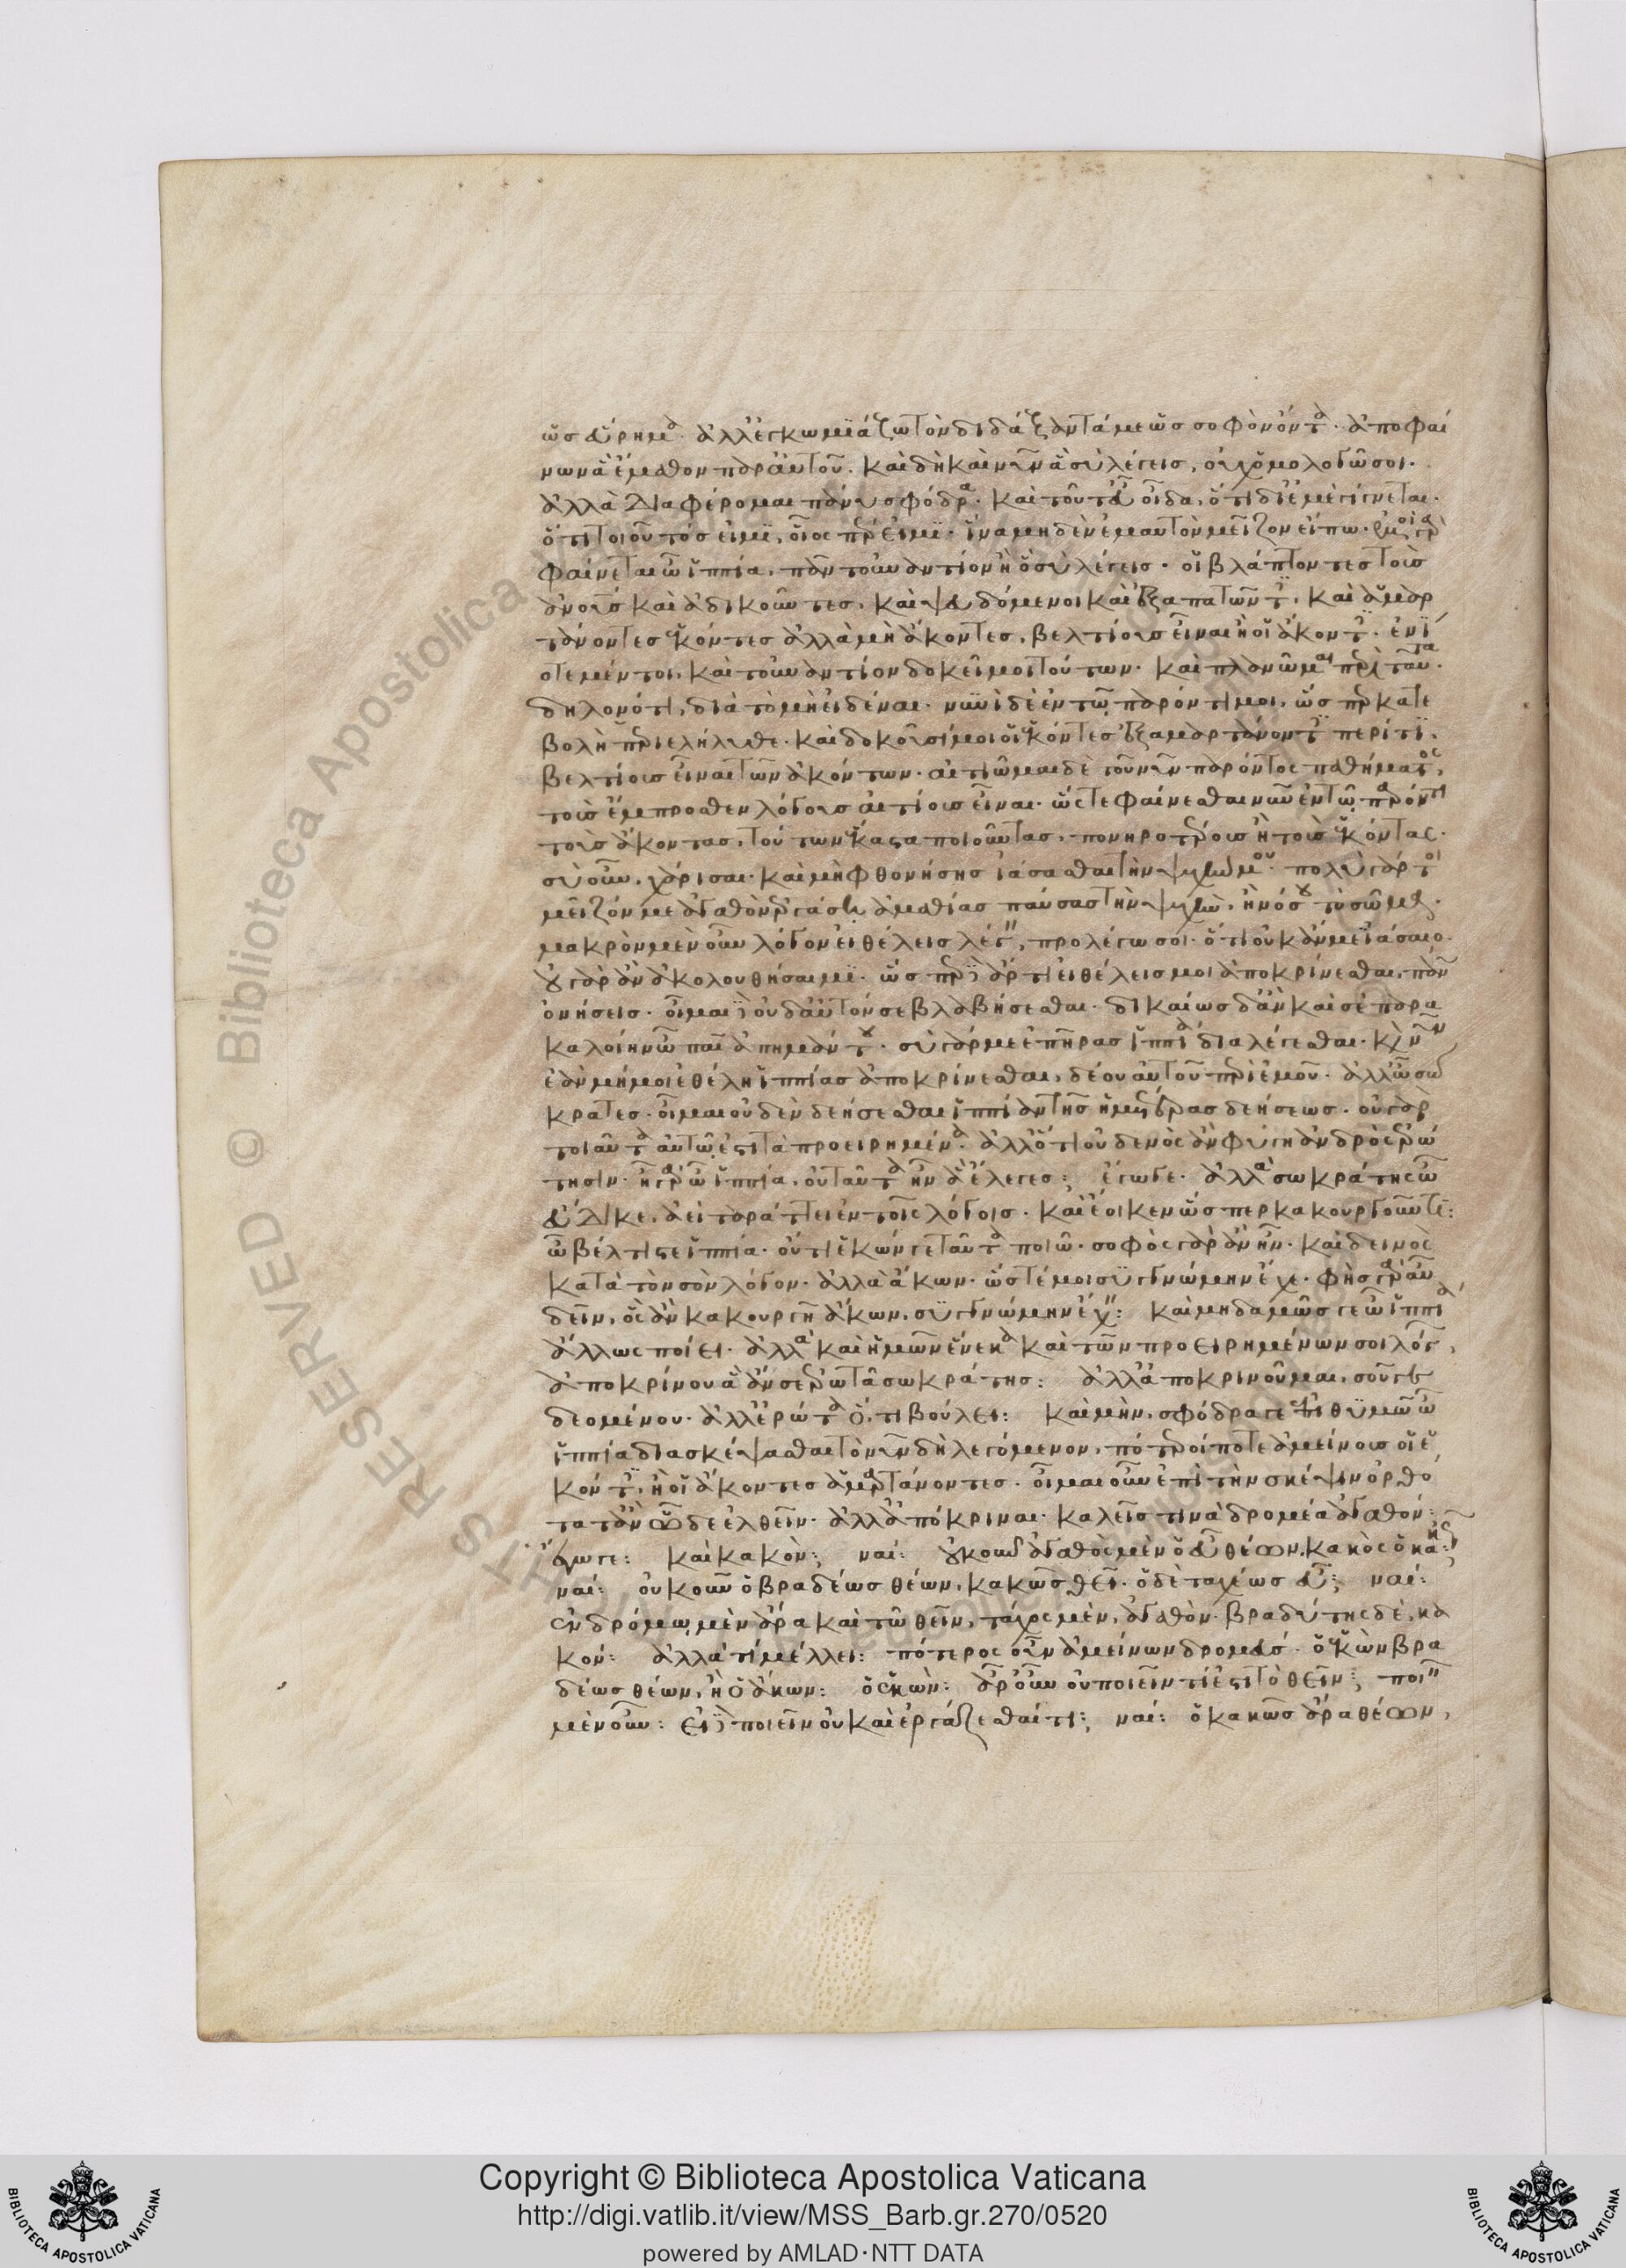 ὡς εὕρημα· ἀλλ' ἐγκωμιάζω τὸν διδάξαντά με ὡς σοφὸν ὄντα· ἀποφαί
νων ἃ ἔμαθον παρ' αὐτοῦ. καὶ δὴ καὶ νῦν ἃ σὺ λέγεις, οὐχ ὁμολογῶ σοι.
ἀλλὰ διαφέρομαι πάνυ σφόδρα· καὶ τοῦτ' εὖ οἶδα, ὅτι δι' ἐμὲ γίγνεται.
ὅτι τοιοῦτός εἰμι, οἷός περ εἰμι· ἵνα μηδὲν ἐμαυτὸν μεῖζον εἴπω· ἐμοὶ γὰρ
φαίνεται ὦ ἱππία, πᾶν τοὐναντίον ἢ ὃ σὺ λέγεις· οἱ βλάπτοντες τοὺς
ἀνους καὶ ἀδικοῦντες, καὶ ψευδόμενοι καὶ ἐξαπατῶντες, καὶ ἁμαρ
τάνοντες ἑκόντες ἀλλὰ μὴ ἄκοντες, βελτίους εἶναι ἢ οἱ ἄκοντες· ἐνί
οτε μέντοι, καὶ τοὐναντίον δοκεῖ μοι τούτων· καὶ πλανῶμαι περὶ ταῦτα·
δηλονότι, διὰ τὸ μὴ εἰδέναι· νυνὶ δὲ ἐν τῷ παρόντι μοι, ὥσπερ κατη
βολὴ περιελήλυθε· καὶ δοκοῦσί μοι οἱ ἑκόντες ἐξαμαρτάνοντες περί τι,
βελτίους εἶναι τῶν ἀκόντων· αἰτιῶμαι δὲ τοῦ νῦν παρόντος παθήματος,
τοὺς ἔμπροσθεν λόγους αἰτίους εἶναι· ὥστε φαίνεσθαι νῦν ἐν τῷ παρόντι
τοὺς ἄκοντας, τούτων ἕκαστα ποιοῦντας, πονηροτέρους ἢ τοὺς ἑκόντας·
σὺ οὖν, χάρισαι· καὶ μὴ φθονήσῃς ἰάσασθαι τὴν ψυχήν μου· πολὺ γάρ τοι
μεῖζόν με ἀγαθὸν ἐργάσῃ ἀμαθίας παύσας τὴν ψυχὴν, ἢ νόσου τὸ σῶμα.
μακρὸν μὲν οὖν λόγον εἰ θέλεις λέγειν, προλέγω σοι· ὅτι οὐκ ἄν με ἰάσαιο·
οὐ γὰρ ἂν ἀκολουθήσαιμι· ὥσπερ δὲ ἄρτι εἰ θέλεις μοι ἀποκρίνεσθαι, πάνυ
ὀνήσεις· οἶμαι δὲ οὐδ' αὐτόν σε βλαβήσεσθαι· δικαίως δ' ἂν καὶ σὲ παρα
καλοίην ὦ παῖ ἀπημάντου· σὺ γάρ με ἐπῆρας ἱππίᾳ διαλέγεσθαι· καὶ νῦν
ἐὰν μή μοι ἐθέλῃ ἱππίας ἀποκρίνεσθαι, δέου αὐτοῦ περὶ ἐμοῦ· ἀλλ' ὦ σώ
κρατες· οἶμαι οὐδὲν δεήσεσθαι ἱππίαν τῆς ἡμετέρας δεήσεως· οὐ γὰρ
τοιαῦτα αὐτῷ ἐστὶ τὰ προειρημένα· ἀλλ' ὅτι οὐδενὸς ἂν φύγῃ ἀνδρὸς ἐρώ
τησιν· ἦ γὰρ ὦ ἱππία, οὐ ταῦτα ἦν ἃ ἔλεγες; ἔγωγε· ἀλλὰ σωκράτης ὦ
εὔδικε, ἀεὶ ταράττει ἐν τοῖς λόγοις· καὶ ἔοικεν ὥσπερ κακουργοῦντι:
ὦ βέλτιστε ἱππία· οὔτι ἑκών γε ταῦτα ποιῶ· σοφὸς γὰρ ἂν ἦν· καὶ δεινὸς
κατὰ τὸν σὸν λόγον· ἀλλὰ ἄκων· ὥστέ μοι συγγνώμην ἔχε· φῂς γὰρ αὖ
δεῖν, ὃς ἂν κακουργῇ ἄκων, συγγνώμην ἔχειν: καὶ μηδαμῶς γε ὦ ἱππία
ἄλλως ποίει· ἀλλὰ καὶ ἡμῶν ἕνεκα καὶ τῶν προειρημένων σοι λόγων,
ἀποκρίνου ἃ ἄν σε ἐρωτᾷ σωκράτης: ἀλλ' ἀποκρινοῦμαι, σοῦ γε
δεομένου· ἀλλ' ἐρώτα ὅ, τι βούλει: καὶ μὴν, σφόδρα γε ἐπιθυμῶ ὦ
ἱππία διασκέψασθαι τὸ νῦν δὴ λεγόμενον, πότεροί ποτε ἀμείνους οἱ ἑ
κόντες, ἢ οἱ ἄκοντες ἁμαρτάνοντες· οἶμαι οὖν ἐπὶ τὴν σκέψιν ὀρθό
τατ' ἂν ὧδε ἐλθεῖν· ἀλλ' ἀπόκριναι· καλεῖς τινὰ δρομέα ἀγαθόν:
ἔγωγε: καὶ κακόν; ναί: οὐκοῦν ἀγαθὸς μὲν ὁ εὖ θέων, κακὸς ὁ κακῶς;
ναί: οὐκοῦν ὁ βραδέως θέων, κακῶς θεῖ· ὁ δὲ ταχέως εὖ; ναί:
ἐν δρόμῳ μὲν ἄρα καὶ τῷ θεῖν, τάχος μὲν, ἀγαθὸν· βραδύτης δὲ, κα
κόν: ἀλλὰ τί μέλλει: πότερος οὖν ἀμείνων δρομεύς· ὁ ἑκὼν βρα
δέως θέων, ἢ ὁ ἄκων: ὁ ἑκών: ἆρ' οὖν οὐ ποιεῖν τί ἐστι τὸ θεῖν; ποιεῖν
μὲν οὖν: εἰ δὲ ποιεῖν οὐ καὶ ἐργάζεσθαί τι; ναί: ὁ κακῶς ἄρα θέων,
Copyright © Biblioteca Apostolica Vaticana
http://digi.vatlib.it/view/MSS_Barb.gr.270/0520
powered by AMLAD·NTT DATA